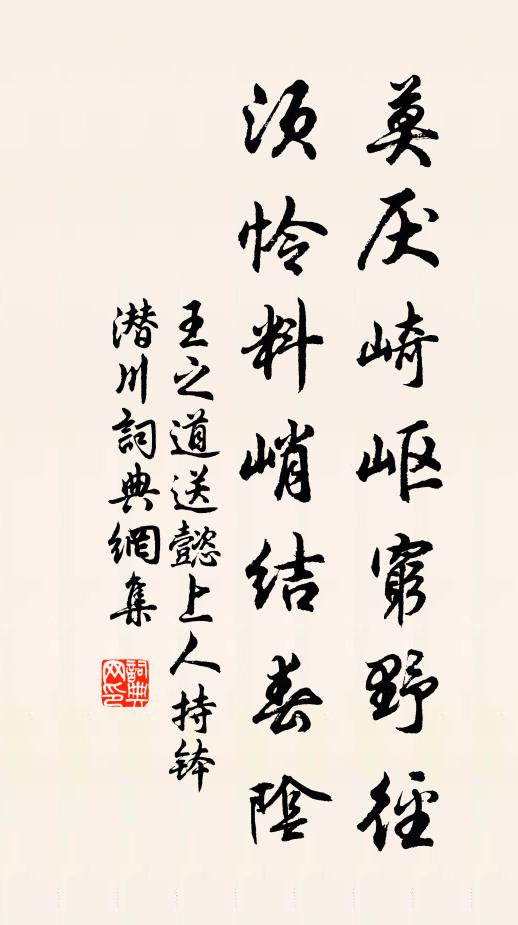 莫厌崎岖穷野径
须怜料峭结春阴
王之道送懿上人持钵
潜川詞典網集
詞典网印